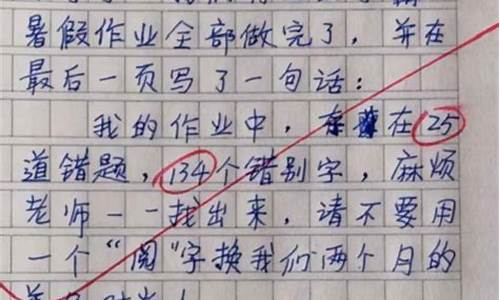 暑假作业全部做完了，并在
最后一页写了一句话：
我的作业中，在25
道错题，134个错别字，麻烦
老师一一找出来，请不要用
一个“阅”字换我们两个月的